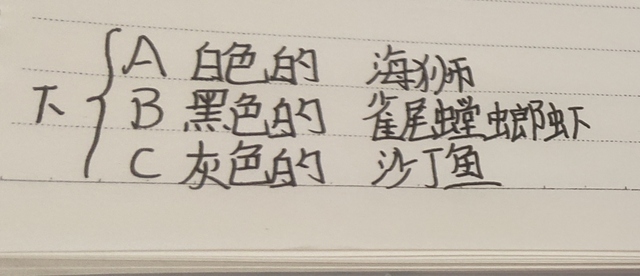 下 { A 白色的 海狮
B 黑色的 雀尾螳螂虾
C 灰色的 沙丁鱼